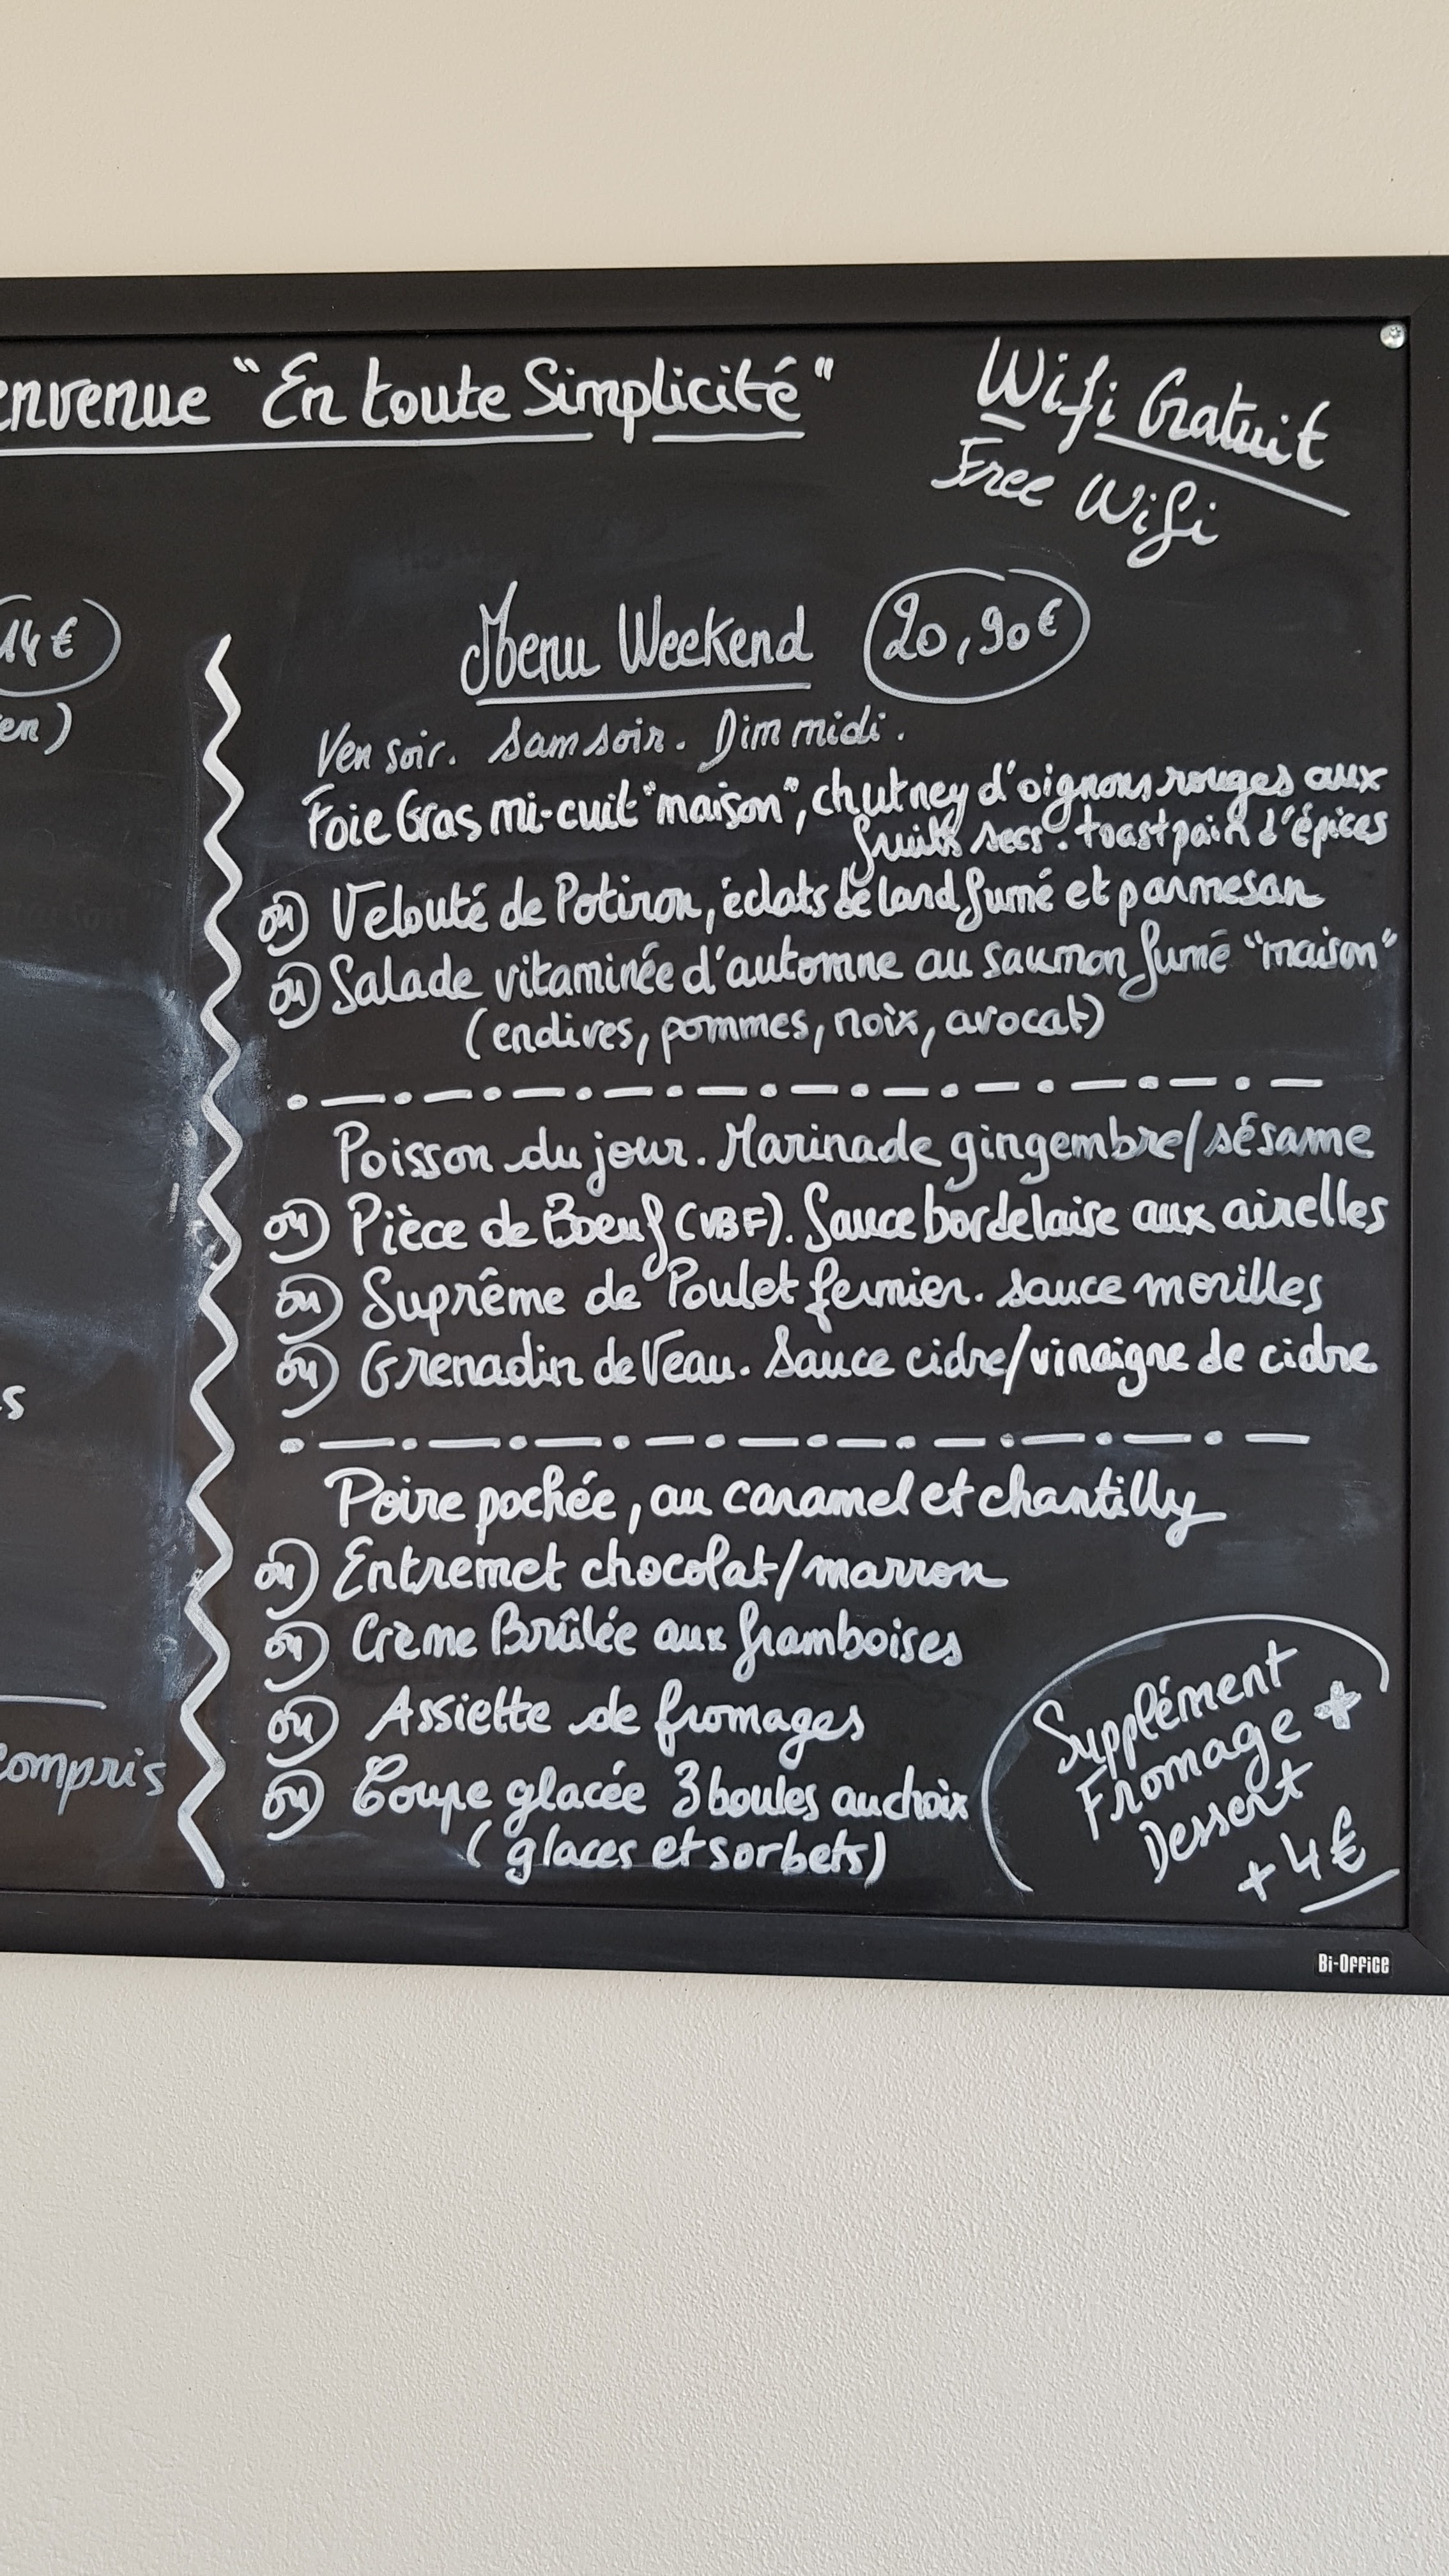 envenue "En toute Simplicité"
Wifi Gratuit
Free Wifi
14€
en)
s
compris
Menu Weekend 20,90€
Ven soir. Sam soir. Dim midi.
Foie Gras mi-cuit "maison", chutney d'oignons rouges aux
fruits secs. toast pain d'épices
ou Velouté de Potiron, éclats de lard fumé et parmesan
ou Salade vitaminée d'automne au saumon fumé "maison"
(endives, pommes, noix, avocat)
Poisson du jour. Marinade gingembre/sésame
ou Pièce de Boeuf (VBF). Sauce bordelaise aux airelles
ou Suprême de Poulet fermier. sauce morilles
ou Grenadin de Veau. Sauce cidre/vinaigre de cidre
Poire pochée, au caramel et chantilly
ou Entremet chocolat/marron
ou Crème Brûlée aux framboises
ou Assiette de fromages
ou Coupe glacée 3 boules au choix
(glaces et sorbets)
Supplément
Fromage +
Dessert
+ 4€
Bi-Office